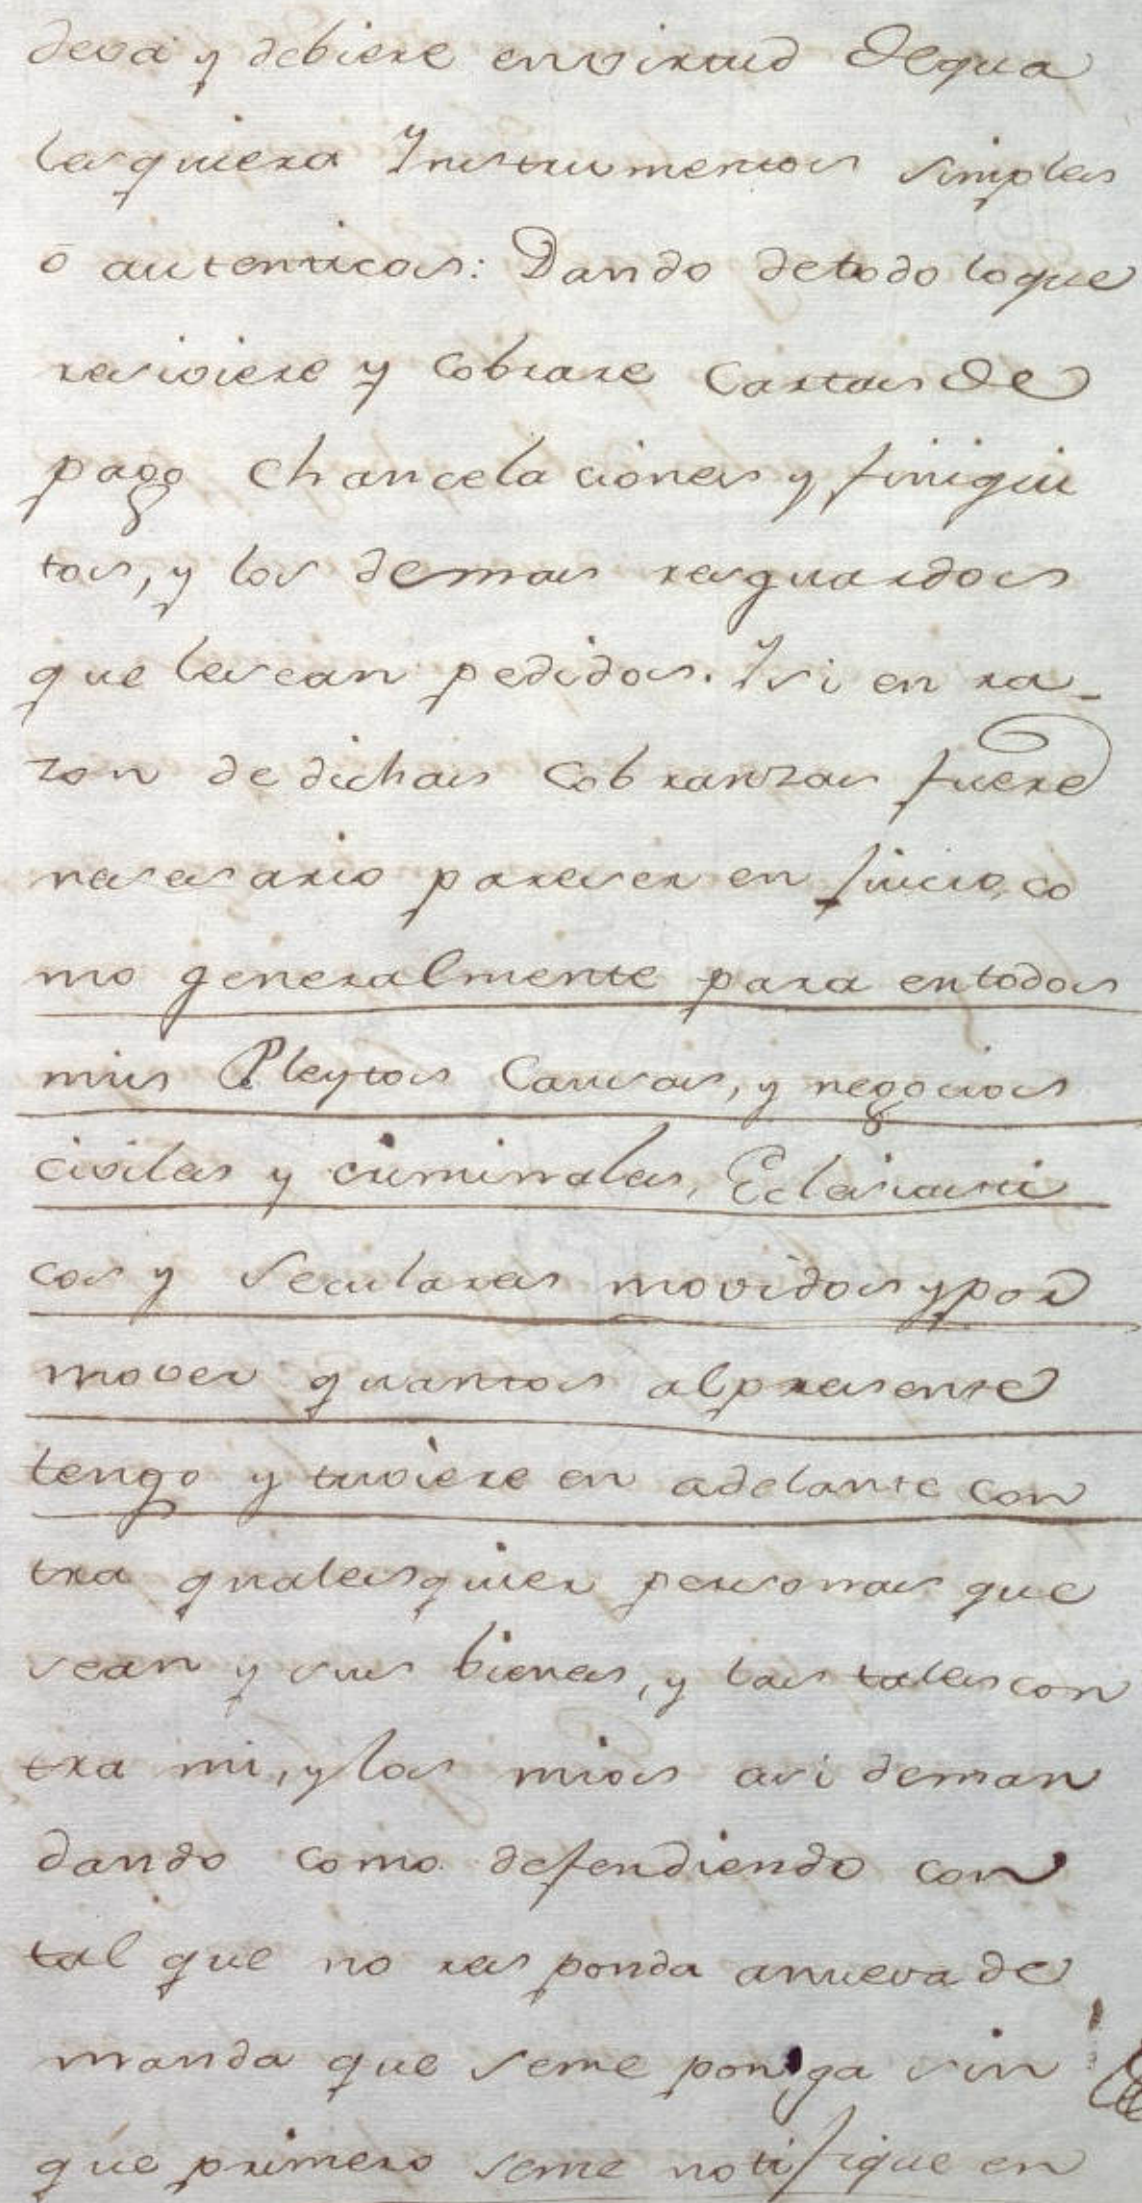 deva y debiere envirtud Dequa
lesquiera Ynstrumentos simples
ó autenticos: Dando detodo loque
resiviere y Cobrare Cartas De
pago Chancelaciones y finiqui
tos, y los demas resguardos
que lesean pedidos. Ysi en ra-
zon de dichas Cobranzas fuere
nesesario pareser en Juicio, co
mo generalmente para entodos
mis Pleytos Causas, y negocios
civiles y criminales, Eclesiasti
cos y Seculares movidos ypor
mover quantos alpresente
tengo y tuviere en adelante con
tra qualesquier personas que
sean y sus bienes, y las tales con
tra mi, y los mios asi deman
dando como defendiendo con
tal que no responda anueva de
manda que seme ponga sin
que primero seme notifique en